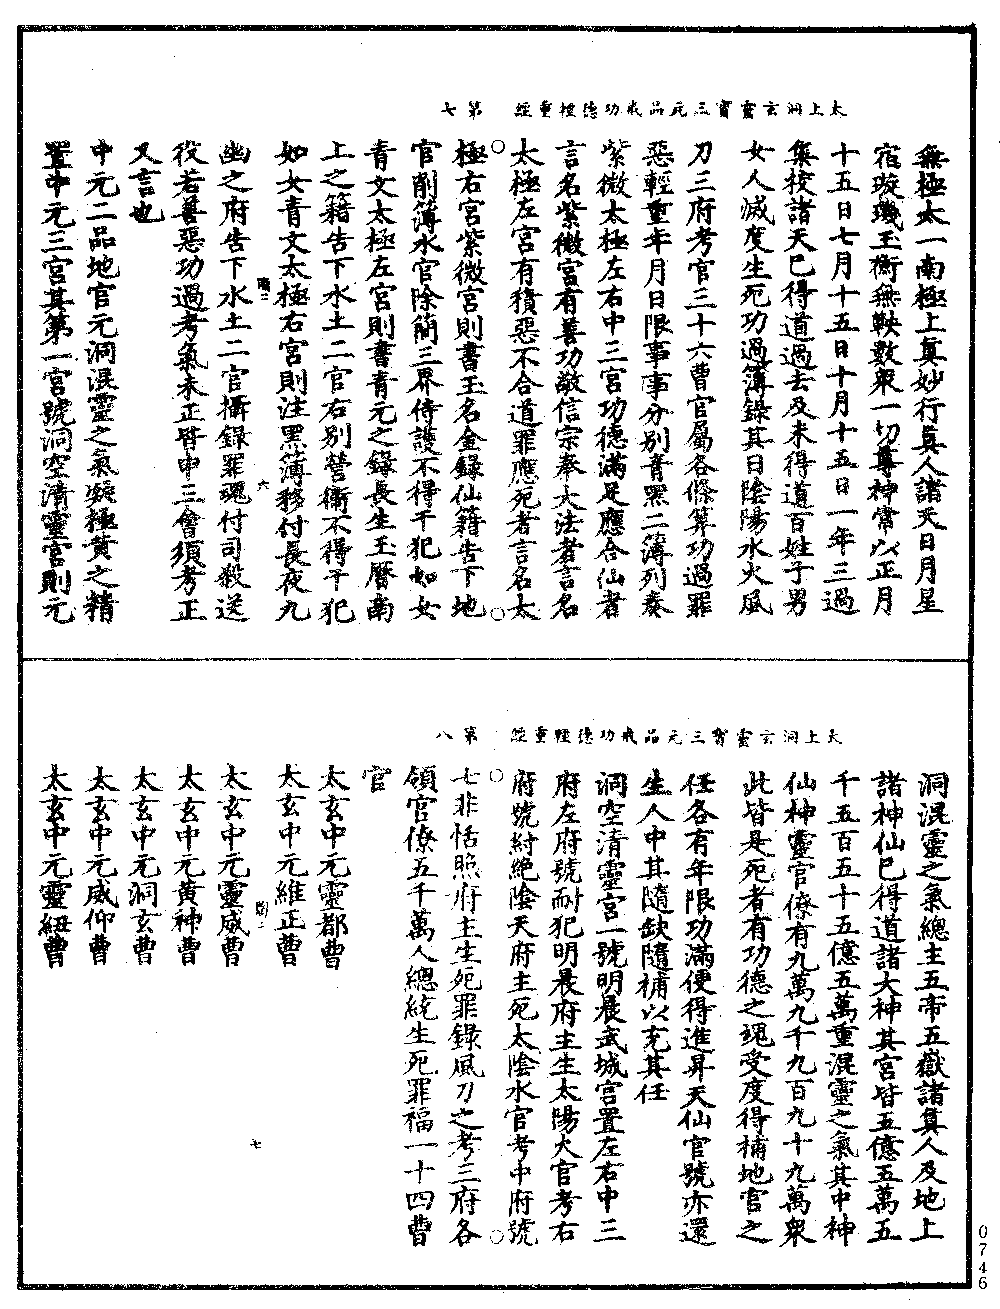 太上洞玄靈寶三元品戒功德輕重經　第七
無極太一南極上真妙行真人諸天日月星
宿璇璣玉衡無鞅數眾一切尊神常以正月
十五日七月十五日十月十五日一年三過
集校諸天已得道過去及未得道百姓子男
女人滅度生死功過簿錄其日陰陽水火風
刀三府考官三十六曹官屬各條算功過罪
惡輕重年月日限事事分別青黑二簿列奏
紫微太極左右中三宮功德滿足應合仙者
言名紫微宮有善功敬信宗奉大法者言名
太極左宮有積惡不合道罪應死者言名太
極右宮紫微宮則書玉名金錄仙籍告下地
官削簿水官除簡三界侍護不得干犯如女
青文太極左宮則書青元之錄長生玉曆南
上之籍告下水土二官右別營衛不得干犯
如女青文太極右宮則注黑簿移付長夜九
幽之府告下水土二官攝錄罪魂付司殺送
役若善惡功過考氣未正皆申三會須考正
又言也
中元二品地官元洞混靈之氣凝極黃之精
置中元三宮其第一宮號洞空清靈宮則元
六
太上洞玄靈寶三元品戒功德輕重經　第八
洞混靈之氣總主五帝五嶽諸真人及地上
諸神仙已得道諸大神其宮皆五億五萬五
千五百五十五億五萬重混靈之氣其中神
仙神靈官僚有九萬九千九百九十九萬眾
此皆是死者有功德之魂受度得補地官之
任各有年限功滿便得進昇天仙官號亦還
生人中其隨缺隨補以充其任
洞空清靈宮一號明晨武城宮置左右中三
府左府號耐犯明晨府主生太陽火官考右
府號紂絕陰天府主死太陰水官考中府號
七非恬照府主生死罪錄風刀之考三府各
領官僚五千萬人總統生死罪福一十四曹
官
太玄中元靈都曹
太玄中元維正曹
太玄中元靈威曹
太玄中元黃神曹
太玄中元洞玄曹
太玄中元威仰曹
太玄中元靈紐曹
七
0746